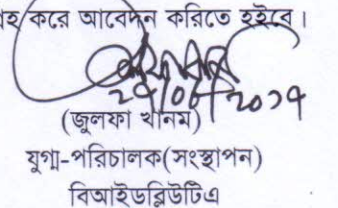 করে আবেদন করিতে হইবে।
২৭/০৮/২০১৭
(জুলফা খানম)
যুগ্ম-পরিচালক(সংস্থাপন)
বিআইডব্লিউটিএ